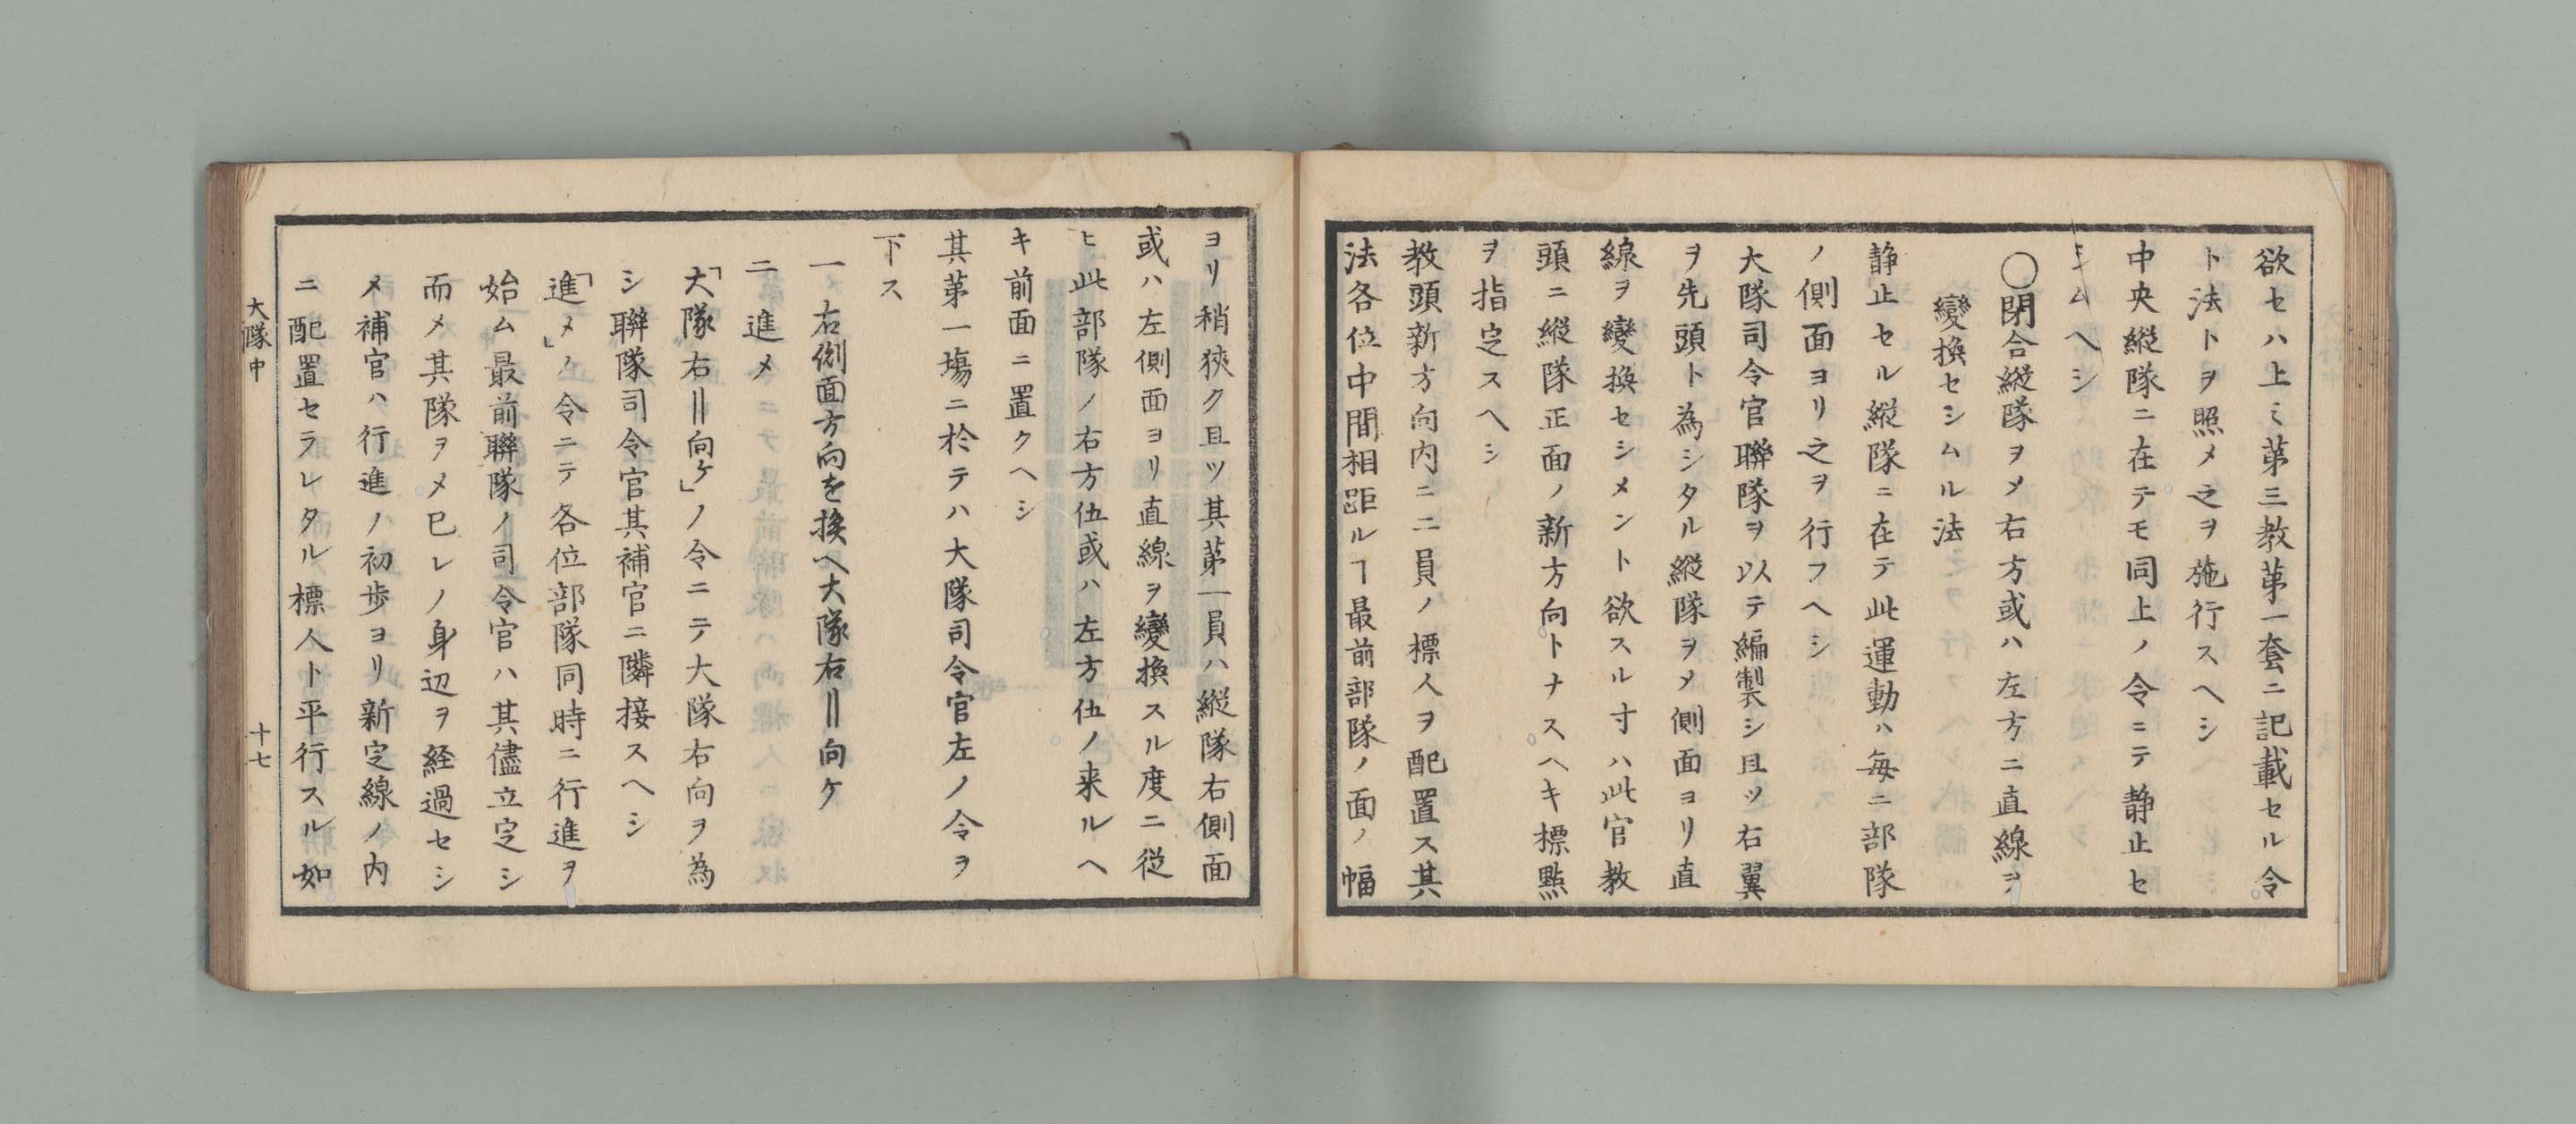 欲セハ上ミ第三教第一套ニ記載セル令
ト法トヲ照メ之ヲ施行スヘシ
中央縦隊ニ在テモ同上ノ令ニテ静止セ
シムヘシ
○閉合縦隊ヲメ右方或ハ左方ニ直線ヲ
變換セシムル法
静止セル縦隊ニ在テ此運動ハ毎ニ部隊
ノ側面ヨリ之ヲ行フヘシ
大隊司令官聯隊ヲ以テ編製シ且ツ右翼
ヲ先頭ト為シタル縦隊ヲメ側面ヨリ直
線ヲ變換セシメント欲スル寸ハ此官教
頭ニ縦隊正面ノ新方向トナスヘキ標點
ヲ指定スヘシ
教頭新方向内ニ二員ノ標人ヲ配置ス其
法各位中間相距ルヿ最前部隊ノ面ノ幅
ヨリ稍狹ク且ツ其第一員ハ縦隊右側面
或ハ左側面ヨリ直線ヲ變換スル度ニ従
ヒ此部隊ノ右方伍或ハ左方伍ノ来ルヘ
キ前面ニ置クヘシ
其第一塲ニ於テハ大隊司令官左ノ令ヲ
下ス
一 右側面方向を換へ大隊右‖向ケ
二進メ
「大隊右‖向ケ」ノ令ニテ大隊右向ヲ為
シ聯隊司令官其補官ニ隣接スヘシ
「進メ」ノ令ニテ各位部隊同時ニ行進ヲ
始ム最前聯隊ノ司令官ハ其儘立定シ
而メ其隊ヲメ已レノ身辺ヲ経過セシ
メ補官ハ行進ノ初歩ヨリ新定線ノ内
ニ配置セラレタル標人ト平行スル如
大隊中
十七